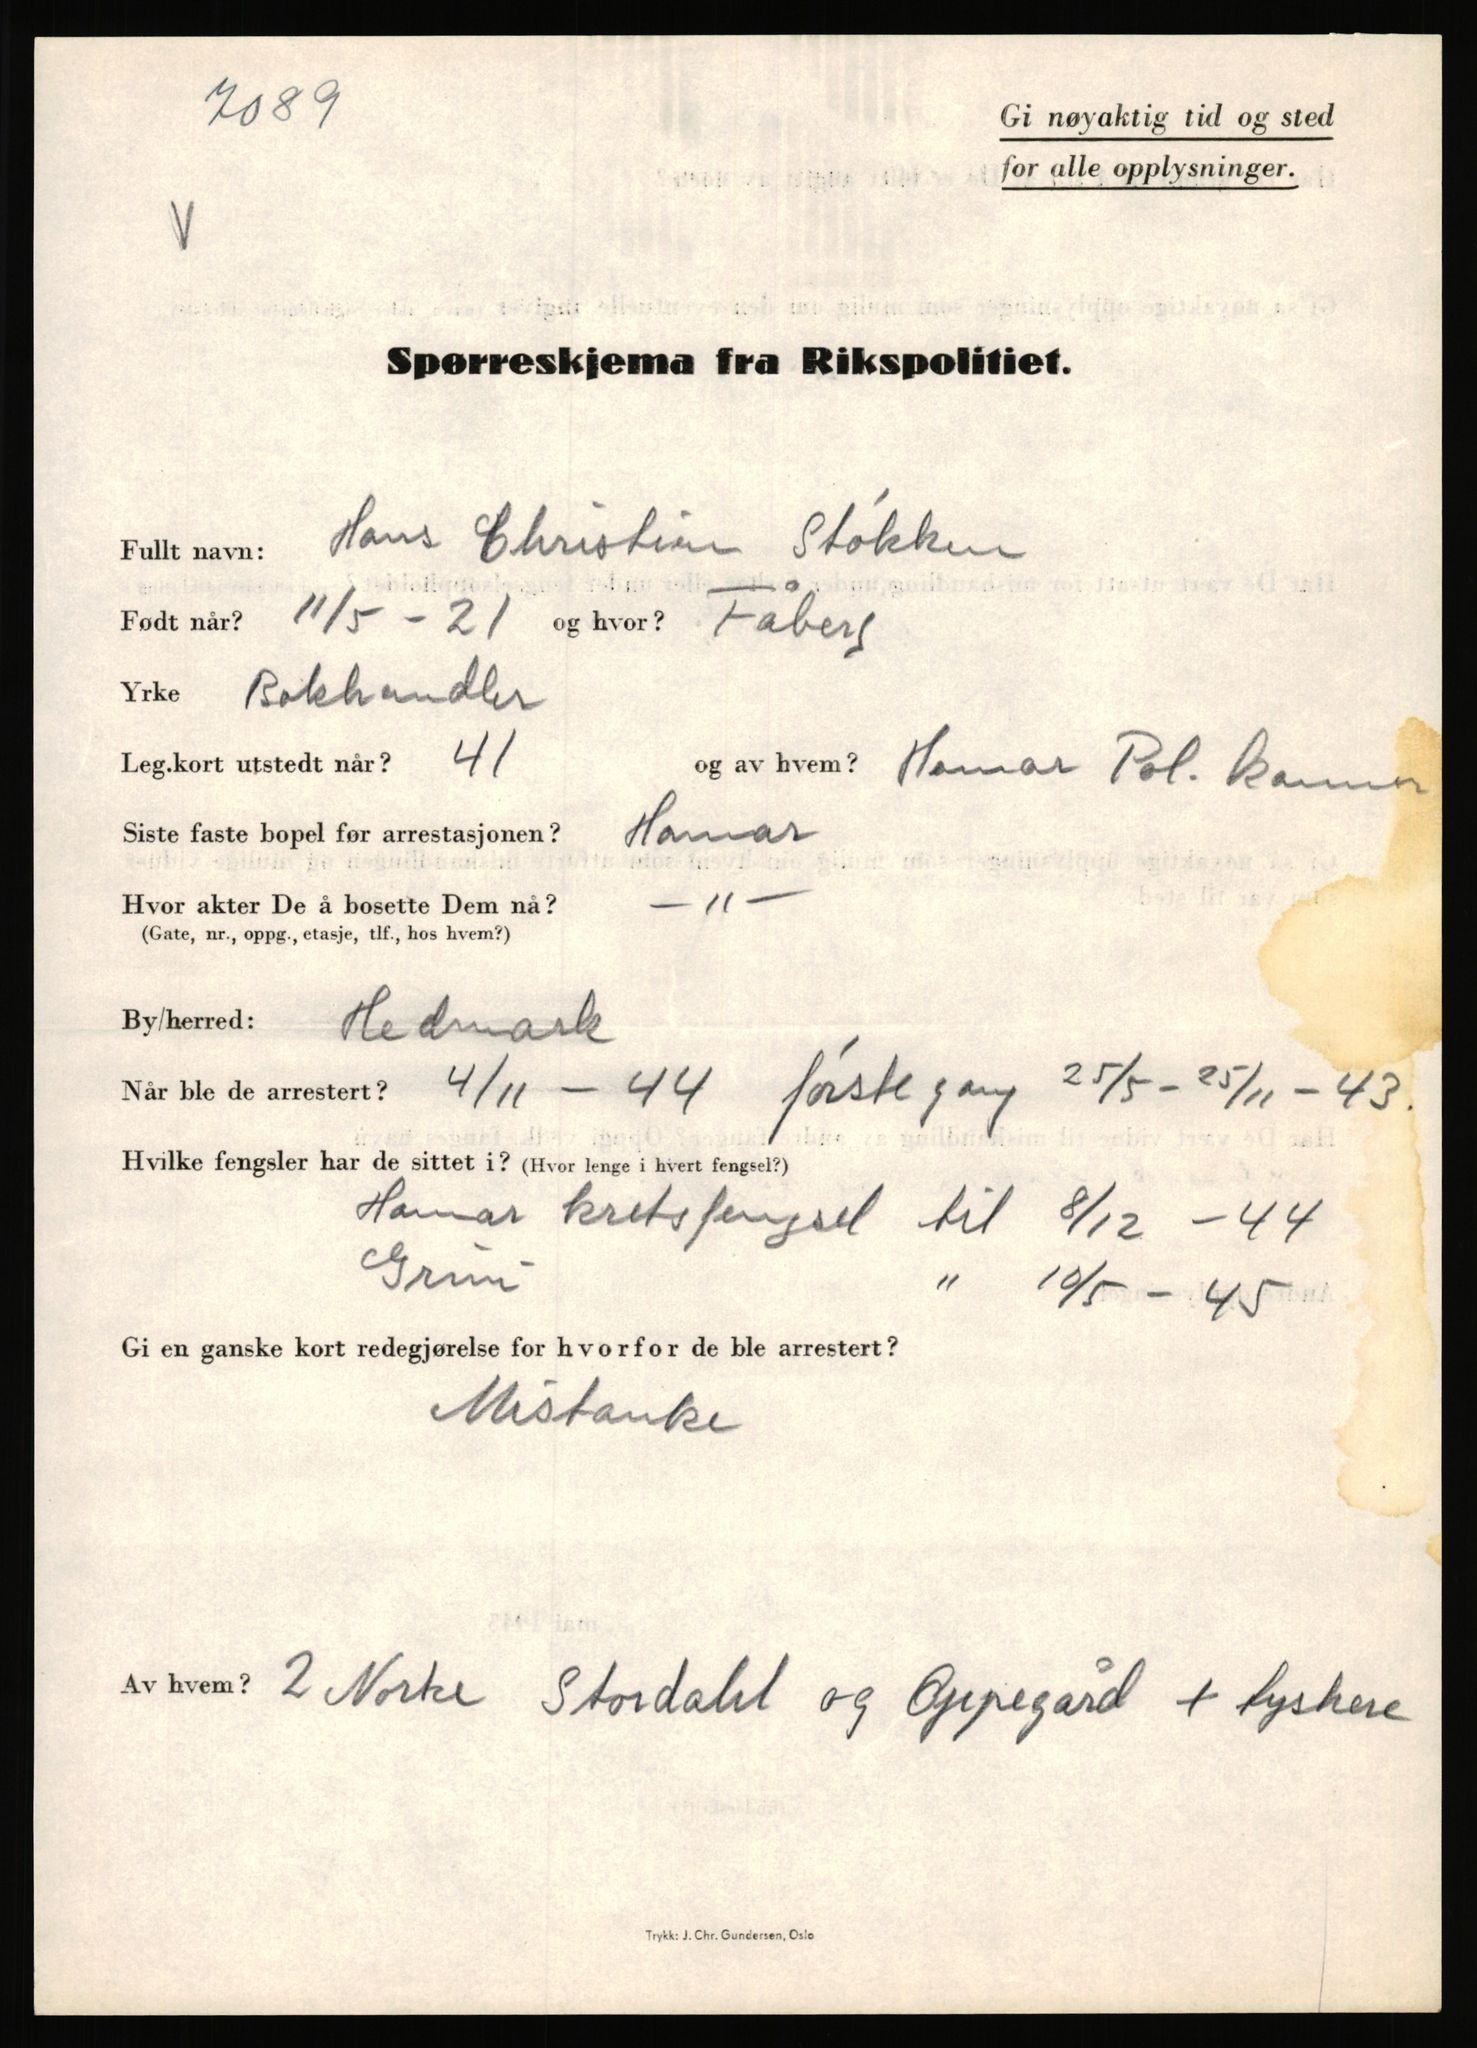 7089
Gi nøyaktig tid og sted
for alle opplysninger.
V
Spørreskjema fra Rikspolitiet.
Fullt navn: Hans Christian Støkken
Født når? 11/5 - 21 og hvor? Fåberg
Yrke Bokhandler
Leg.kort utstedt når? 41 og av hvem? Hamar Pol. kammer
Siste faste bopel før arrestasjonen? Hamar
Hvor akter De å bosette Dem nå? — " —
(Gate, nr., oppg., etasje, tlf., hos hvem?)
By/herred: Hedmark
Når ble de arrestert? 4/11 - 44 første gang 25/5 - 25/11 - 43.
Hvilke fengsler har de sittet i? (Hvor lenge i hvert fengsel?)
Hamar kretsfengsel til 8/12 - 44
Grini " 10/5 - 45
Gi en ganske kort redegjørelse for hvorfor de ble arrestert?
Mistanke
Av hvem? 2 Norke Stordahl og Oppegård + tyskere
Trykk: J. Chr. Gundersen, Oslo